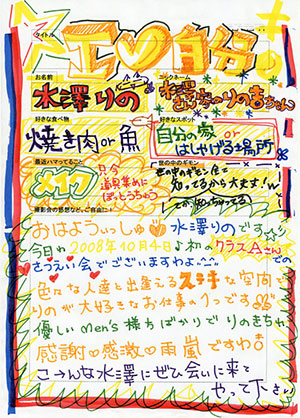 タイトル
I♡自分
お名前
水澤りの
ニックネーム
水澤さん家のりの吉ちゃん
好きな食べ物
焼き肉or魚
好きなスポット
自分の家or
はしゃげる場所
最近ハマってること
メイク
只今
道具集めに
ぼっとうちゅう
世の中のギモン
世の中のギモン全て
知ってるから大丈夫!w
撮影会の感想など、ご自由に!
おはよういっしゅ♡水澤りのです☆
今日は2008年10月4日♪松のクラスAさんでの
さつえい会でございますわよ
色々な人達と出逢えるステキな空間で
りのが大好きなお仕事の1つです
優しいmen's様ちばかりでりのきちゃ
感謝♡感激♡雨嵐ですわ
こ→んな水澤にぜひ会いに来て
やって下さい